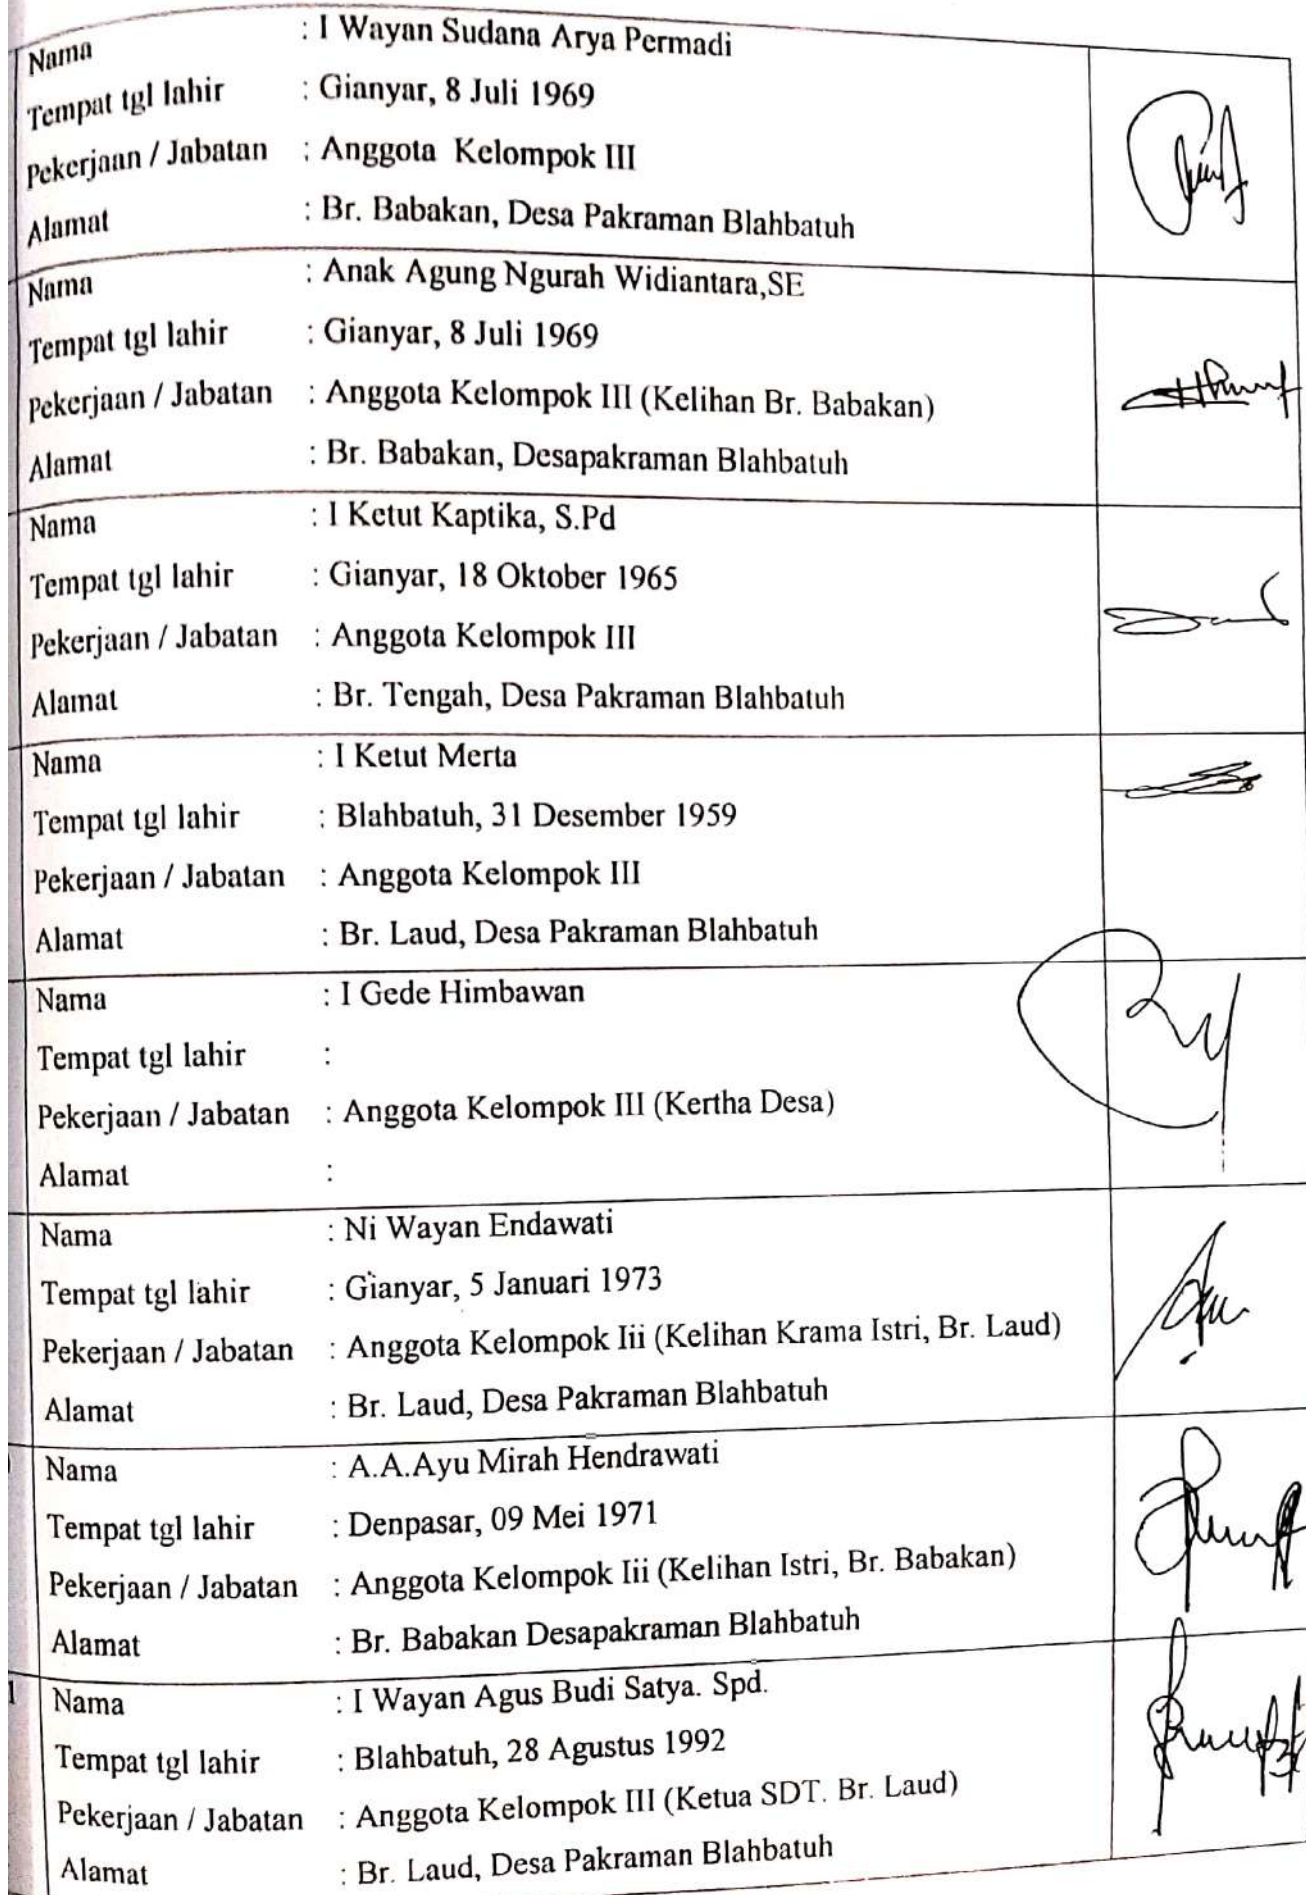 Nama : I Wayan Sudana Arya Permadi
Tempat tgl lahir : Gianyar, 8 Juli 1969
Pekerjaan / Jabatan : Anggota Kelompok III
Alamat : Br. Babakan, Desa Pakraman Blahbatuh
Nama : Anak Agung Ngurah Widiantara,SE
Tempat tgl lahir : Gianyar, 8 Juli 1969
Pekerjaan / Jabatan : Anggota Kelompok III (Kelihan Br. Babakan)
Alamat : Br. Babakan, Desapakraman Blahbatuh
Nama : I Ketut Kaptika, S.Pd
Tempat tgl lahir : Gianyar, 18 Oktober 1965
Pekerjaan / Jabatan : Anggota Kelompok III
Alamat : Br. Tengah, Desa Pakraman Blahbatuh
Nama : I Ketut Merta
Tempat tgl lahir : Blahbatuh, 31 Desember 1959
Pekerjaan / Jabatan : Anggota Kelompok III
Alamat : Br. Laud, Desa Pakraman Blahbatuh
Nama : I Gede Himbawan
Tempat tgl lahir :
Pekerjaan / Jabatan : Anggota Kelompok III (Kertha Desa)
Alamat :
Nama : Ni Wayan Endawati
Tempat tgl lahir : Gianyar, 5 Januari 1973
Pekerjaan / Jabatan : Anggota Kelompok Iii (Kelihan Krama Istri, Br. Laud)
Alamat : Br. Laud, Desa Pakraman Blahbatuh
Nama : A.A.Ayu Mirah Hendrawati
Tempat tgl lahir : Denpasar, 09 Mei 1971
Pekerjaan / Jabatan : Anggota Kelompok Iii (Kelihan Istri, Br. Babakan)
Alamat : Br. Babakan Desapakraman Blahbatuh
Nama : I Wayan Agus Budi Satya. Spd.
Tempat tgl lahir : Blahbatuh, 28 Agustus 1992
Pekerjaan / Jabatan : Anggota Kelompok III (Ketua SDT. Br. Laud)
Alamat : Br. Laud, Desa Pakraman Blahbatuh